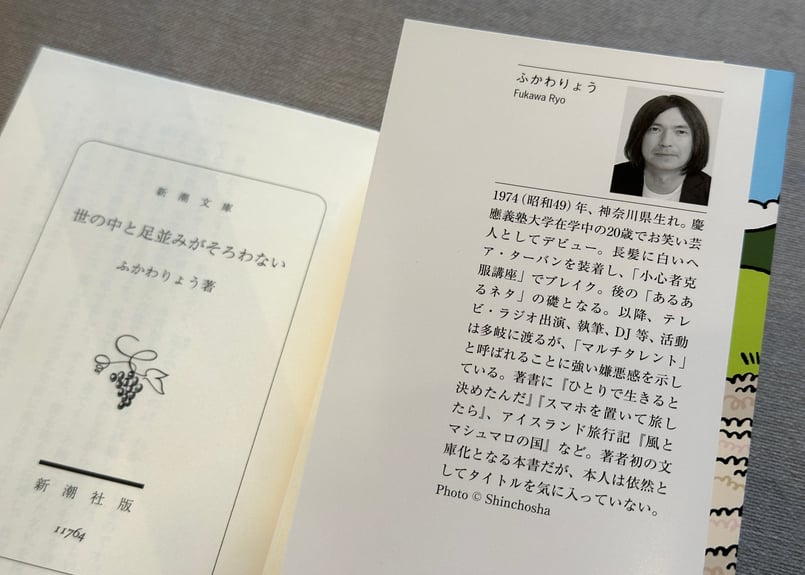 新潮文庫
世の中と足並みがそろわない
ふかわりょう著
新潮社版
11764
ふかわりょう
Fukawa Ryo
1974(昭和49)年、神奈川県生れ。慶
應義塾大学在学中の20歳でお笑い芸
人としてデビュー。長髪に白いヘ
ア・ターバンを装着し、「小心者克
服講座」でブレイク。後の「あるあ
るネタ」の礎となる。以降、テレ
ビ・ラジオ出演、執筆、DJ等、活動
は多岐に渡るが、「マルチタレント」
と呼ばれることに強い嫌悪感を示し
ている。著書に『ひとりで生きると
決めたんだ』『スマホを置いて旅し
たら』、アイスランド旅行記『風と
マシュマロの国』など。著者初の文
庫化となる本書だが、本人は依然と
してタイトルを気に入っていない。
Photo © Shinchosha